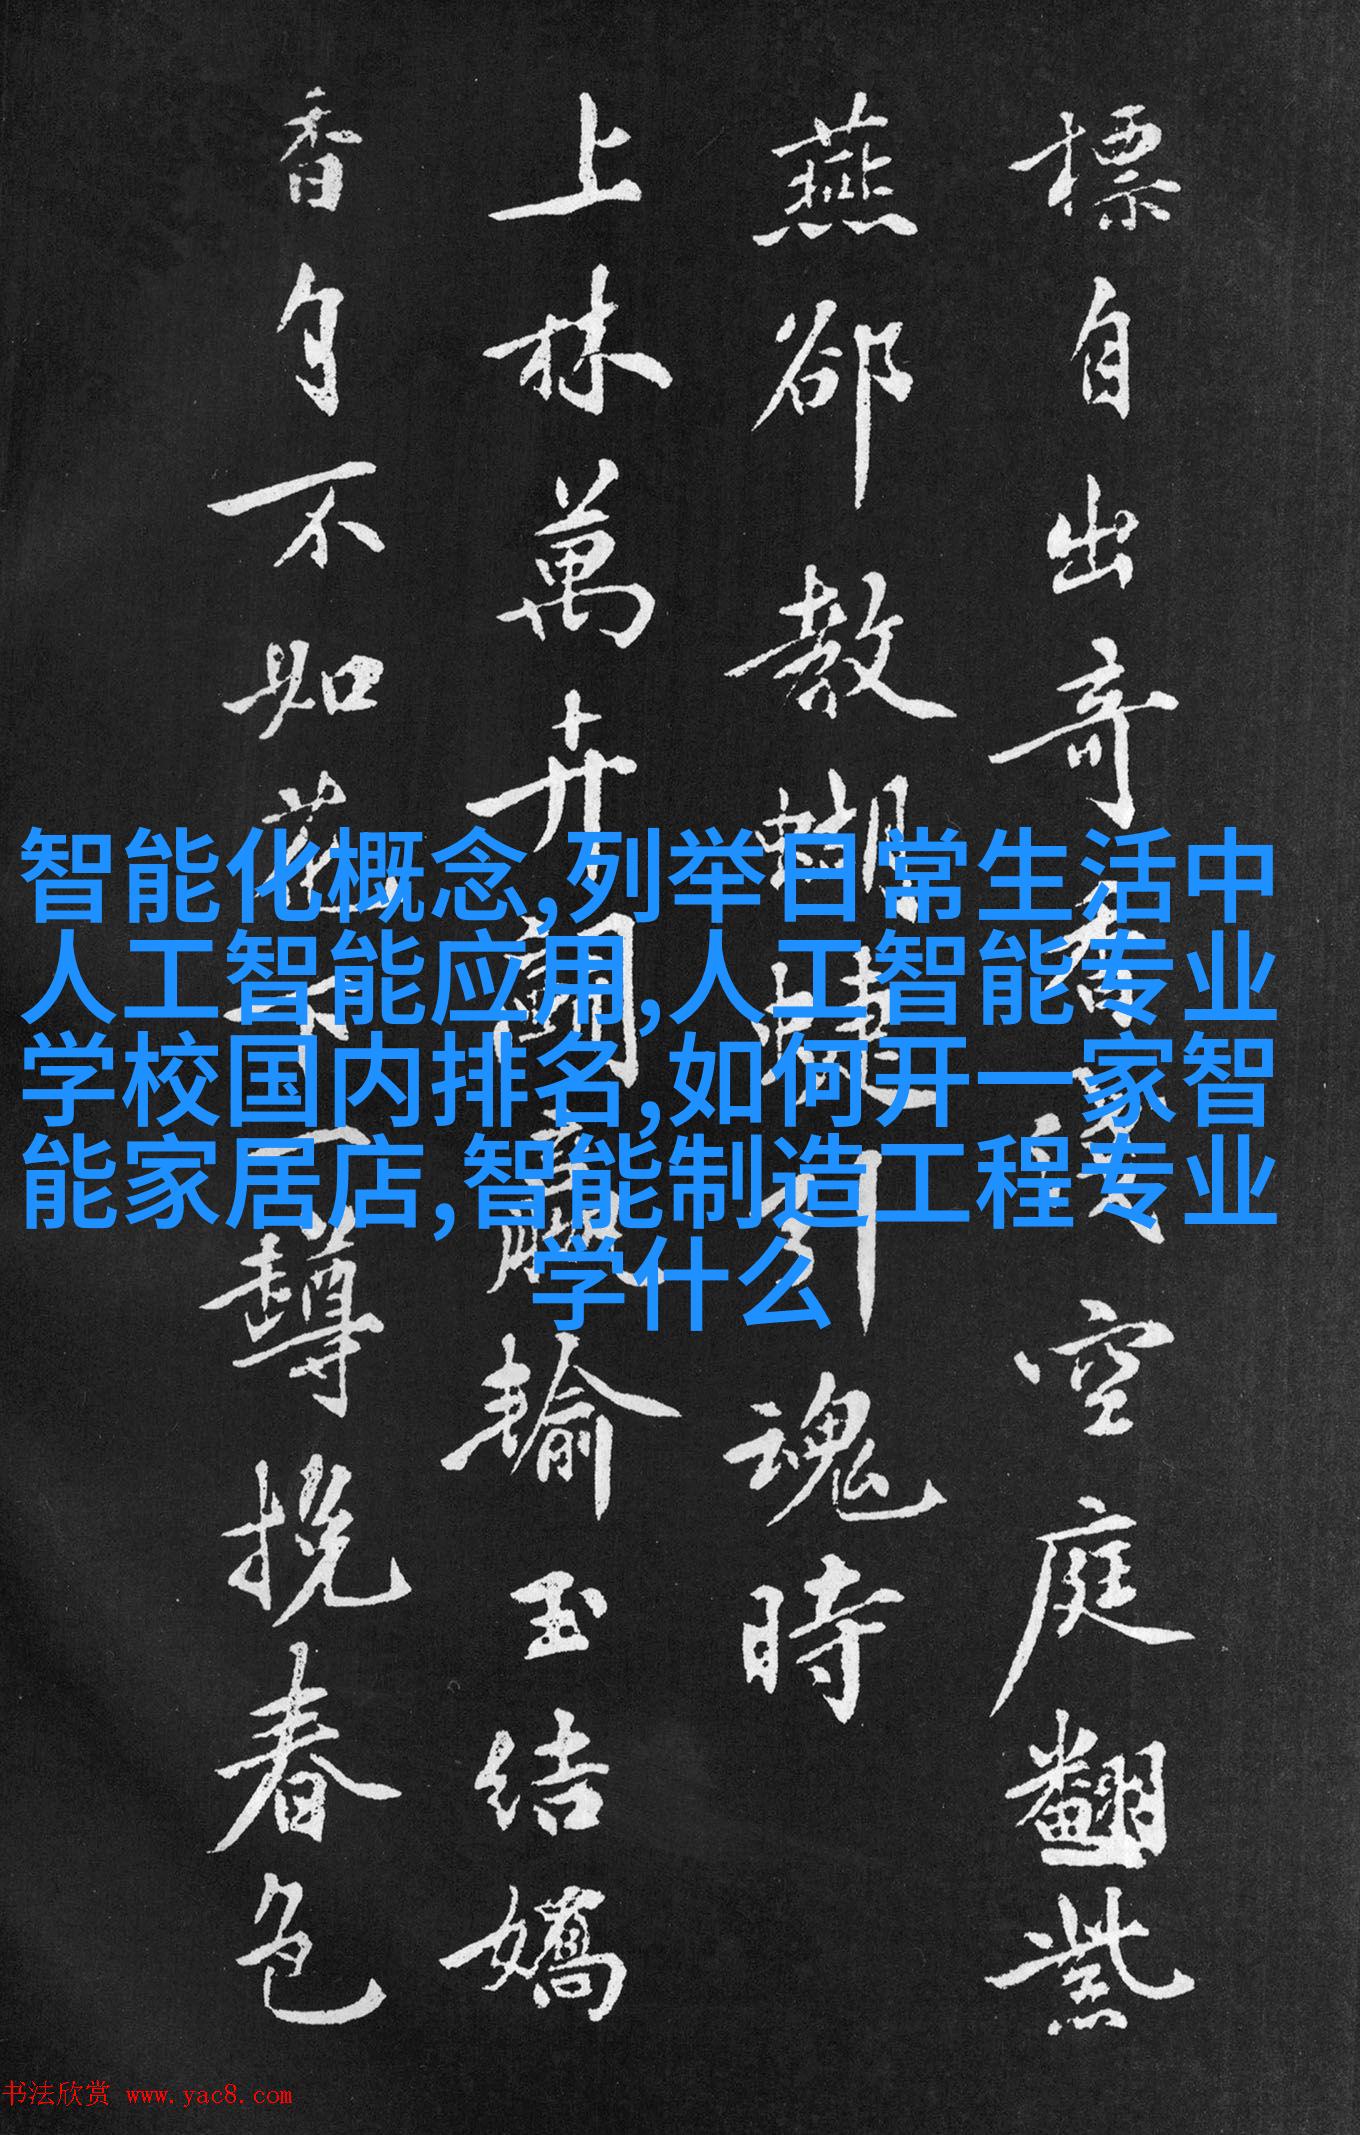 標自出奇空庭翻紫
燕郤教蝴蝶引魂時
上林萬卉闘贏輸玉結嬌
香不花下一挽春色
智能化概念,列举日常生活中
人工智能应用,人工智能专业
学校国内排名,如何开一家智
能家居店,智能制造工程专业
学什么
书法欣赏 www.yac8.com